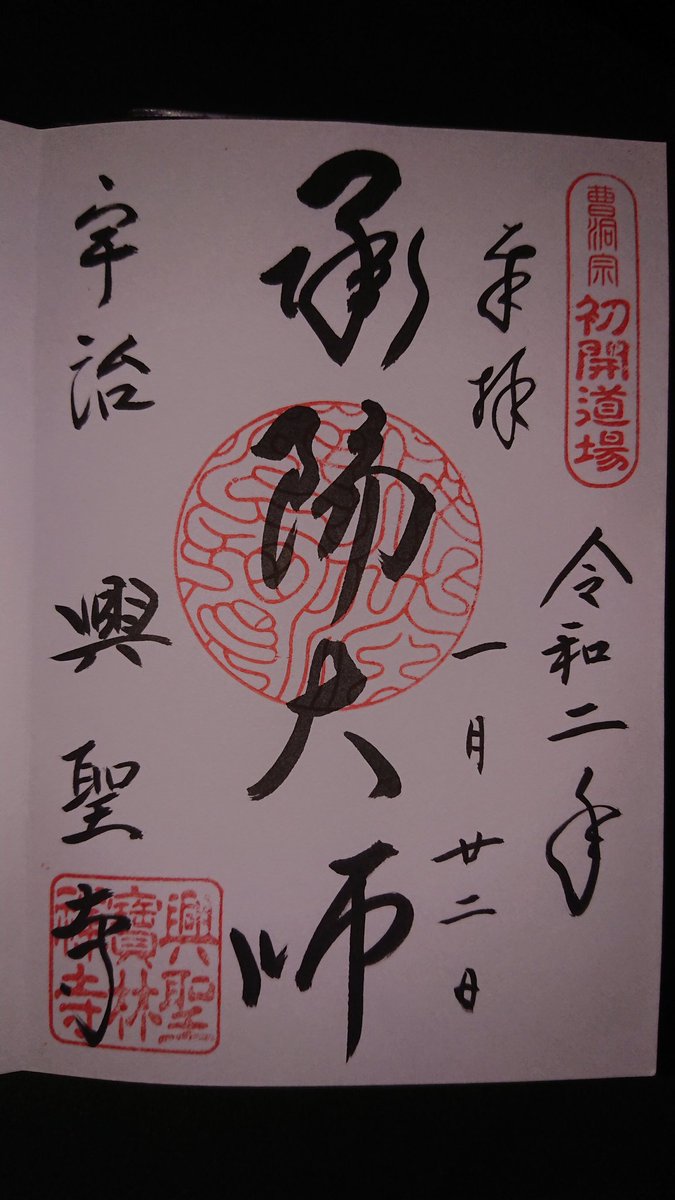 曹洞宗 初開道場
令和二年
奉拝
一月廿二日
承陽大師
宇治 興聖寺
興聖
寶林
禅寺